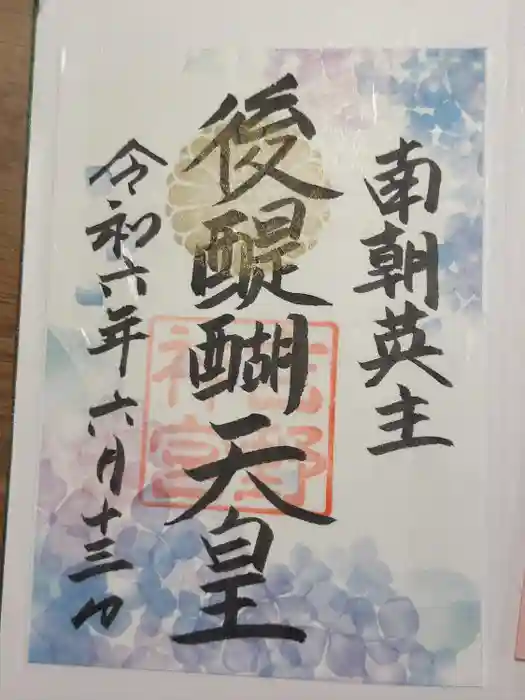 南朝英主
後醍醐天皇
吉野
神宮
令和六年六月十三日